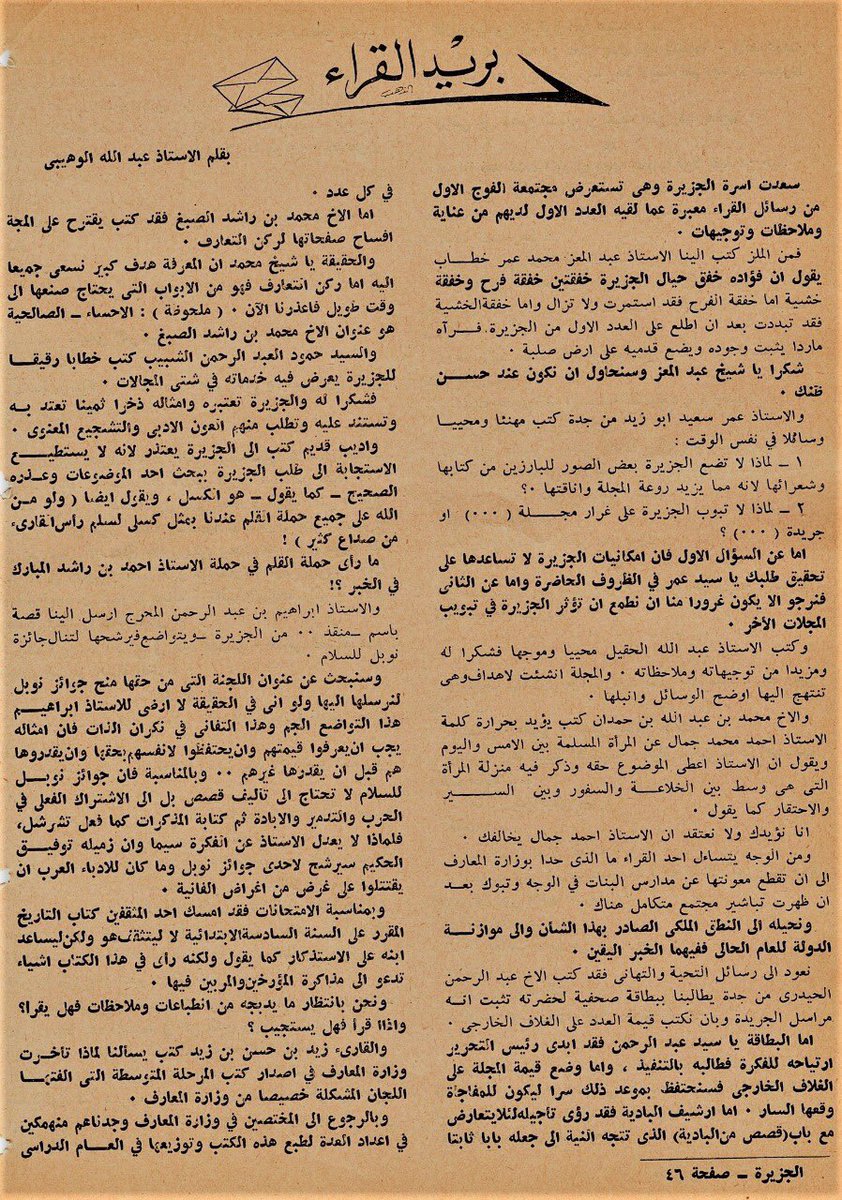 بريد القراء
بقلم الاستاذ عبد الله الوهيبى
سعدت اسرة الجزيرة وهى تستعرض مجتمعة الفوج الاول
من رسائل القراء معبرة عما لقيه العدد الاول لديهم من عناية
وملاحظات وتوجيهات ٠
فمن الملز كتب الينا الاستاذ عبد المعز محمد عمر خطاب
يقول ان فؤاده خفق حيال الجزيرة خفقتين خفقة فرح وخفقة
خشية اما خفقة الفرح فقد استمرت ولا تزال واما خفقة الخشية
فقد تبددت بعد ان اطلع على العدد الاول من الجزيرة فرآه
ماردا يثبت وجوده ويضع قدميه على ارض صلبة ٠
شكرا يا شيخ عبد المعز وسنحاول ان نكون عند حسن
ظنك ٠
والاستاذ عمر سعيد ابو زيد من جدة كتب مهنئا ومحييا
وسائلا في نفس الوقت :
١ ـ لماذا لا تضع الجزيرة بعض الصور للبارزين من كتابها
وشعرائها لانه مما يزيد روعة المجلة واناقتها ٠؟
٢ ـ لماذا لا تبوب الجزيرة على غرار مجلة ( ٠٠٠ ) او
جريدة ( ٠٠٠ ) ؟
اما عن السؤال الاول فان امكانيات الجزيرة لا تساعدها على
تحقيق طلبك يا سيد عمر في الظروف الحاضرة واما عن الثانى
فنرجو الا يكون غرورا منا ان نطمع ان تؤثر الجزيرة في تبويب
المجلات الأخر ٠
وكتب الاستاذ عبد الله الحقيل محييا وموجها فشكرا له
ومزيدا من توجيهاته وملاحظاته ٠ والمجلة انشئت لاهداف وهى
تنتهج اليها اوضح الوسائل وانبلها ٠
والاخ محمد بن عبد الله بن حمدان كتب يؤيد بحرارة كلمة
الاستاذ احمد محمد جمال عن المرأة المسلمة بين الامس واليوم
ويقول ان الاستاذ اعطى الموضوع حقه وذكر فيه منزلة المرأة
التى هى وسط بين الخلاعة والسفور وبين الستر
والاحتقار كما يقول ٠
انا نؤيدك ولا نعتقد ان الاستاذ احمد جمال يخالفك ٠
ومن الوجه يتساءل احد القراء ما الذى حدا بوزارة المعارف
الى ان تقطع معونتها عن مدارس البنات في الوجه وتبوك بعد
ان ظهرت تباشير مجتمع متكامل هناك ٠
ونحيله الى النطق الملكى الصادر بهذا الشأن والى موازنة
الدولة للعام الحالى ففيهما الخبر اليقين ٠
نعود الى رسائل التحية والتهانى فقد كتب الاخ عبد الرحمن
الحيدرى من جدة يطالبنا ببطاقة صحفية لحضرته تثبت انه
مراسل الجريدة وبان نكتب قيمة العدد على الغلاف الخارجي ٠
اما البطاقة يا سيد عبد الرحمن فقد ابدى رئيس التحرير
ارتياحه للفكرة فطالبه بالتنفيذ ، واما وضع قيمة المجلة على
الغلاف الخارجى فسنحتفظ بموعد ذلك سرا ليكون للمفاجأة
وقعها السار ٠ اما ارشيف البادية فقد رؤى تأجيله لئلا يتعارض
مع باب (قصص من البادية) الذى تتجه النية الى جعله بابا ثابتا
في كل عدد ٠
اما الاخ محمد بن راشد الصبغ فقد كتب يقترح على المجة
افساح صفحاتها لركن التعارف ٠
والحقيقة يا شيخ محمد ان المعرفة هدف كبير نسعى جميعا
اليه اما ركن التعارف فهو من الابواب التى يحتاج صنعها الى
وقت طويل فاعذرنا الآن ٠ ( ملحوظة ) : الاحساء ـ الصالحية
هو عنوان الاخ محمد بن راشد الصبغ ٠
والسيد حمود العبد الرحمن الشبيب كتب خطابا رقيقا
للجزيرة يعرض فيه خدماته في شتى المجالات ٠
فشكرا له والجزيرة تعتبره وامثاله ذخرا ثمينا تعتد به
وتستند عليه وتطلب منهم العون الادبى والتشجيع المعنوى ٠
واديب قديم كتب الى الجزيرة يعتذر لانه لا يستطيع
الاستجابة الى طلب الجزيرة ببحث احد الموضوعات وعذره
الصحيح ـ كما يقول ـ هو الكسل ، ويقول ايضا ( ولو من
الله على جميع حملة القلم عندنا بمثل كسلى لسلم رأس القارىء
من صداع كثير ) !
ما رأى حملة القلم في حملة الاستاذ احمد بن راشد المبارك
في الخبر ؟!
والاستاذ ابراهيم بن عبد الرحمن المحرج ارسل الينا قصة
باسم ـ منقذ ٠٠ من الجزيرة ـ ويتواضع فيرشحها لتنال جائزة
نوبل للسلام ٠
وسنبحث عن عنوان اللجنة التى من حقها منح جوائز نوبل
لنرسلها اليها ولو انى في الحقيقة لا ارضى للاستاذ ابراهيم
هذا التواضع الجم وهذا التفانى في نكران الذات فان امثاله
يجب ان يعرفوا قيمتهم وان يحتفظوا لانفسهم بحقها وان يقدروها
هم قبل ان يقدرها غيرهم ٠٠ وبالمناسبة فان جوائز نوبل
للسلام لا تحتاج الى تأليف قصص بل الى الاشتراك الفعلى في
الحرب والتدمير والابادة ثم كتابة المذكرات كما فعل تشرشل،
فلماذا لا يعدل الاستاذ عن الفكرة سيما وان زميله توفيق
الحكيم سيرشح لاحدى جوائز نوبل وما كان للادباء العرب ان
يقتتلوا على غرض من اغراض الفانية ٠
وبمناسبة الامتحانات فقد امسك احد المثقفين كتاب التاريخ
المقرر على السنة السادسة الابتدائية لا ليتثقف هو ولكن ليساعد
ابنه على الاستذكار كما يقول ولكنه رأى في هذا الكتاب اشياء
تدعو الى مذاكرة المؤرخين والمربين فيها ٠
ونحن بانتظار ما يدبجه من انطباعات وملاحظات فهل يقرأ؟
واذا قرأ فهل يستجيب ؟
والقارىء زيد بن حسن بن زيد كتب يسألنا لماذا تأخرت
وزارة المعارف في اصدار كتب المرحلة المتوسطة التى الفتها
اللجان المشكلة خصيصا من وزارة المعارف ٠
وبالرجوع الى المختصين في وزارة المعارف وجدناهم منهمكين
في اعداد العدة لطبع هذه الكتب وتوزيعها في العام الدراسى
الجزيرة ـ صفحة ٤٦